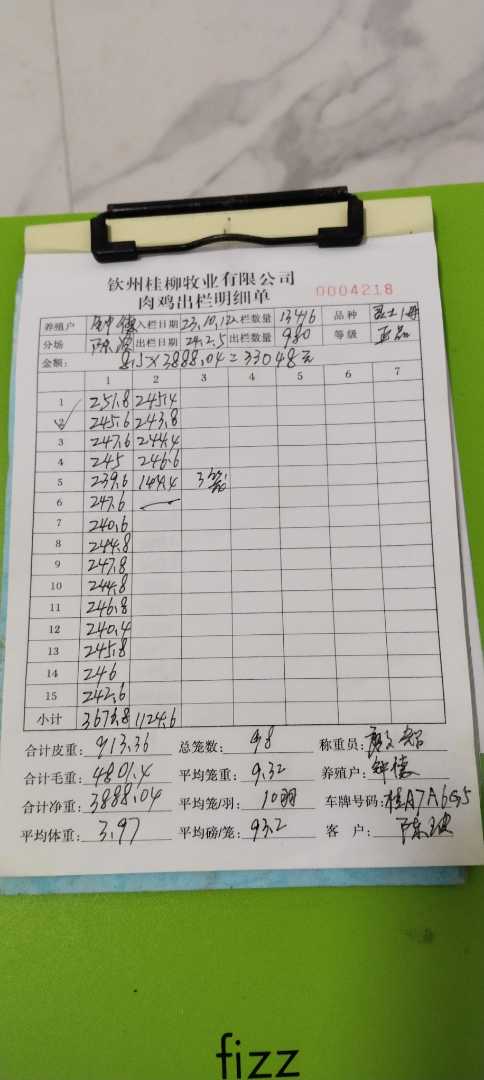 钦州桂柳牧业有限公司
肉鸡出栏明细单 0004218
养殖户 钟德 入栏日期 23.10.12 入栏数量 13416 品种
分场 出栏日期 24.2.5 出栏数量 980 等级 正品
金额： 8.5×3888.04=33048元
1 2 3 4 5 6 7
1 251.8 245.4
2 245.6 243.8
3 247.6 244.4
4 245 246.6
5 239.6 144.4 3笼
6 247.6
7 240.6
8 244.8
9 247.8
10 244.8
11 246.8
12 240.4
13 245.8
14 246
15 242.6
小计 3676.8 1124.6
合计皮重： 913.36 总笼数： 98 称重员：
合计毛重： 4801.4 平均笼重： 9.32 养殖户： 钟德
合计净重： 3888.04 平均笼/羽： 10羽 车牌号码： 桂A7A6G5
平均体重： 3.97 平均磅/笼： 93.2 客 户： 陈
fizz